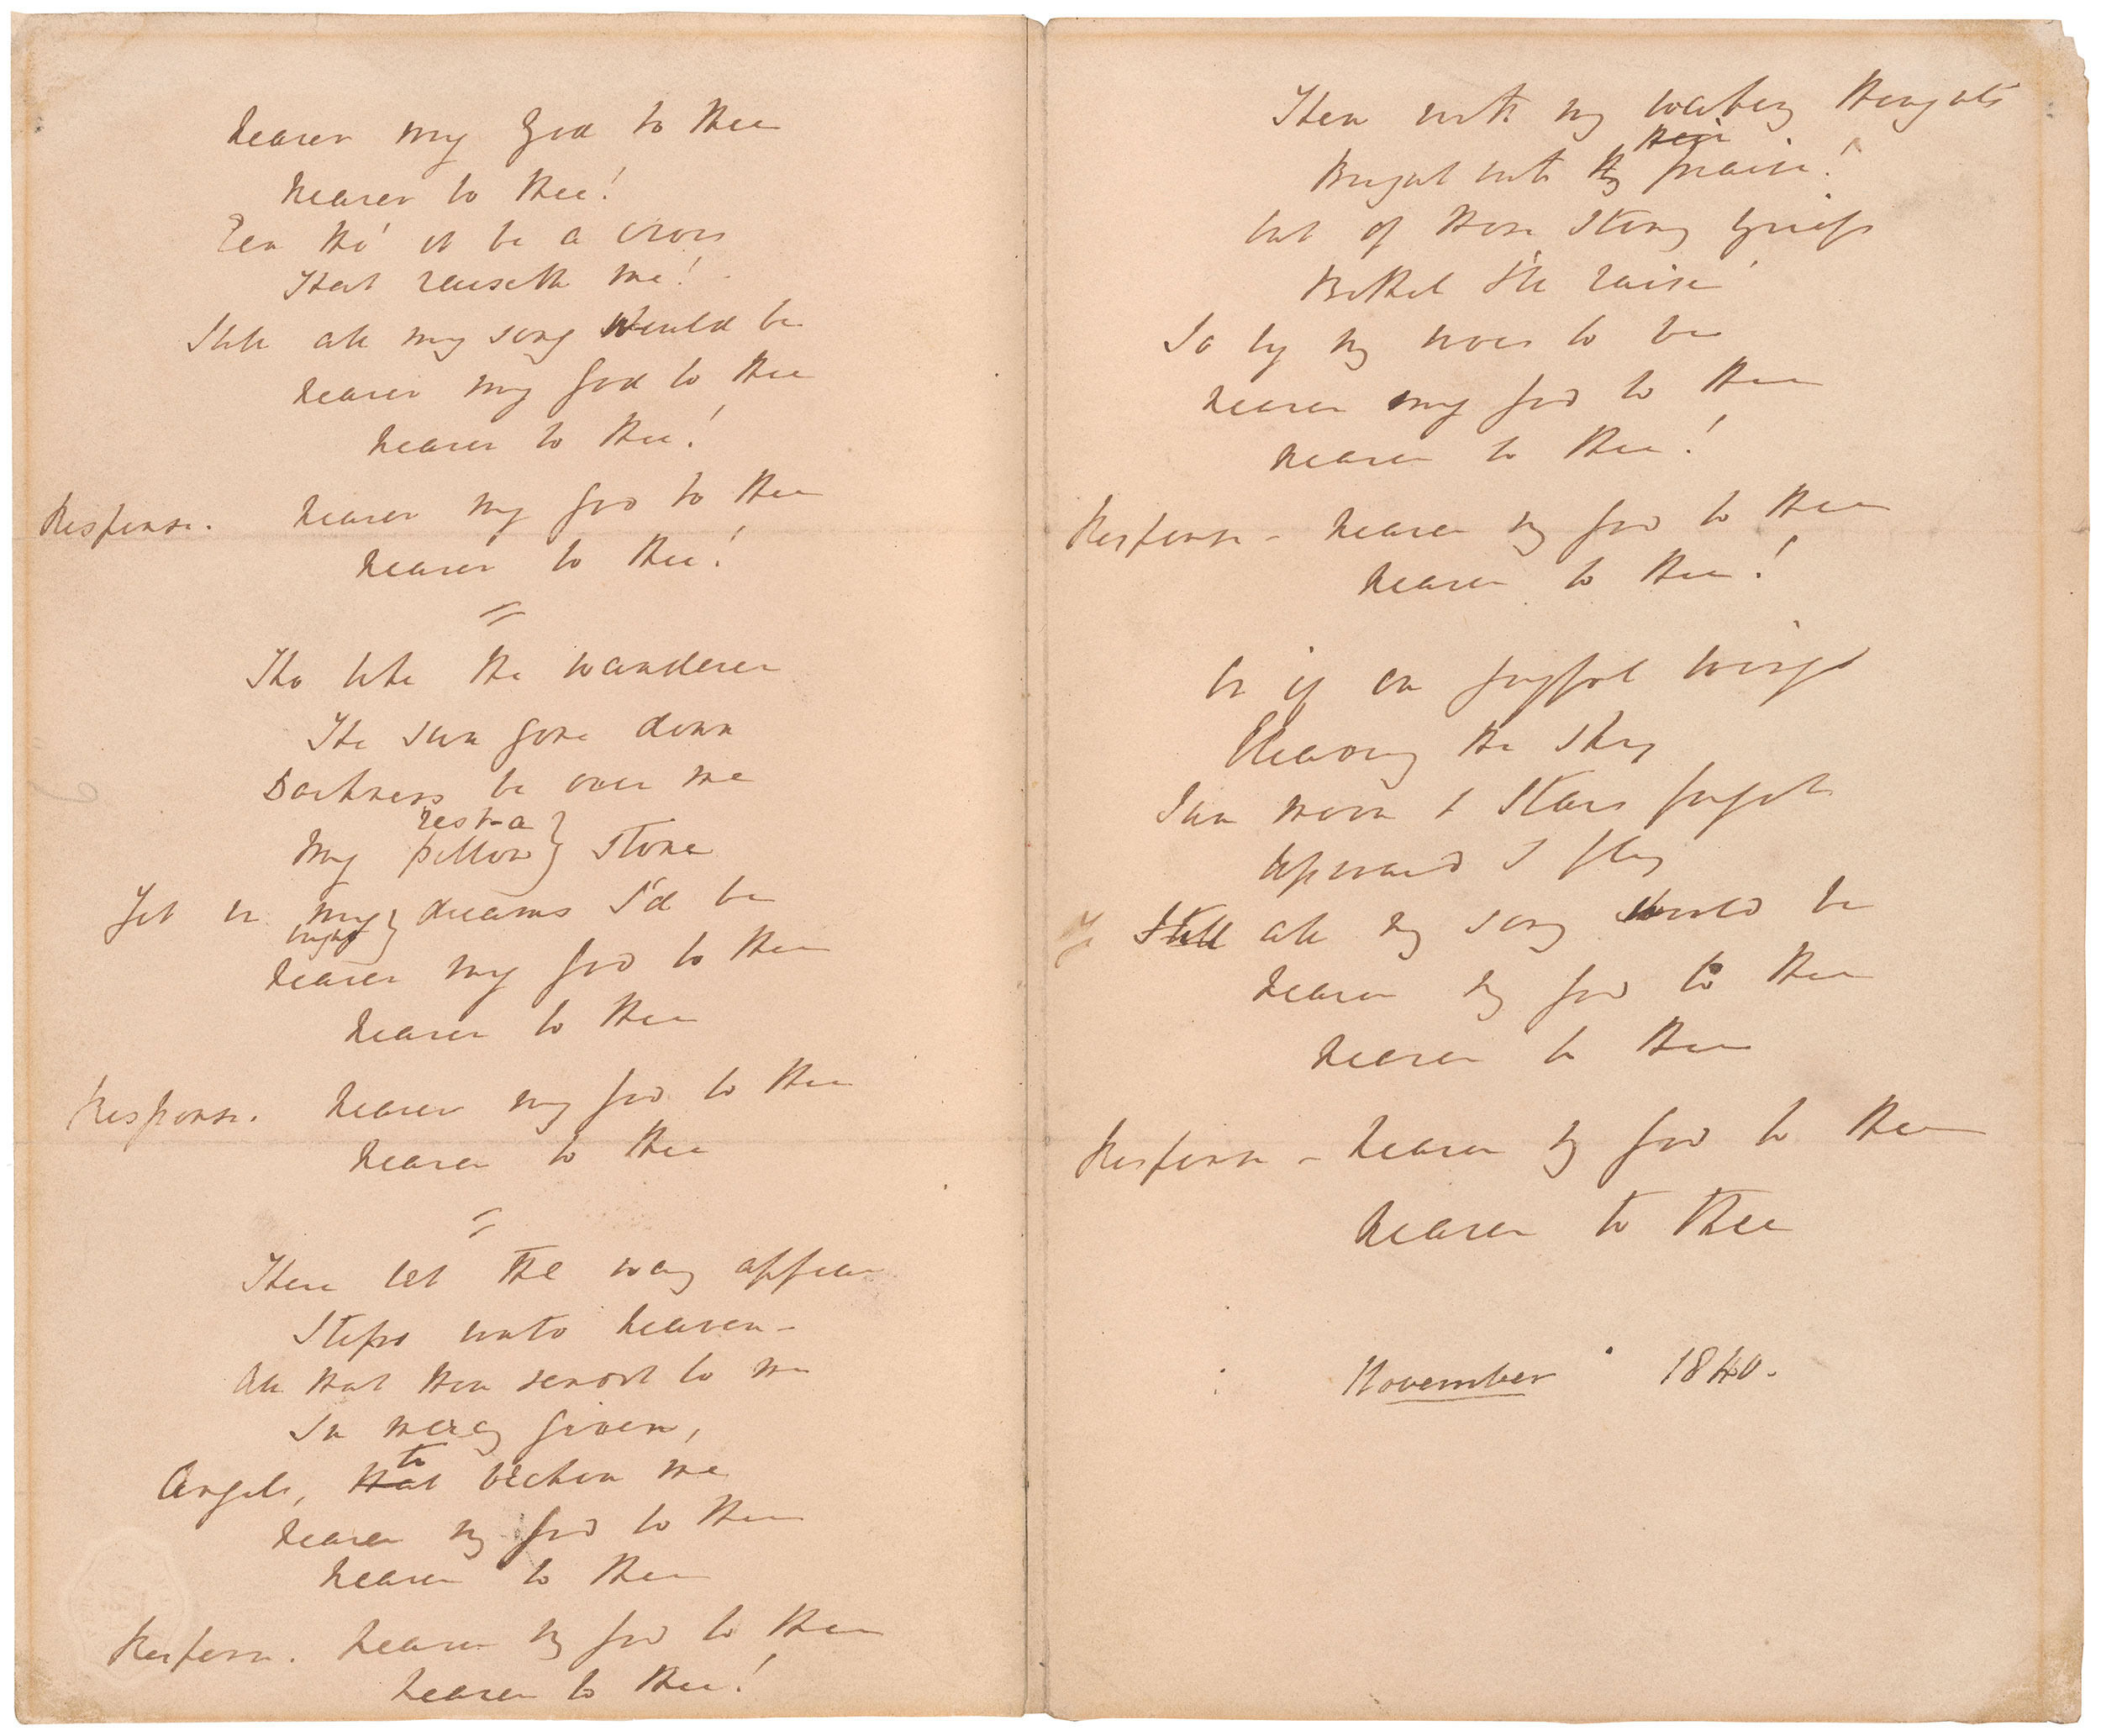 Nearer my God to Thee
Nearer to Thee!
Een tho' it be a cross
That raiseth me!
Still all my song would be
Nearer my God to Thee
Nearer to Thee!
Response. Nearer my God to Thee
Nearer to Thee!
Tho like the wanderer
The sun gone down
Darkness be over me
rest a
My pillow } stone
Yet in my } dreams I'd be
bright
Nearer my God to Thee
Nearer to Thee
Response. Nearer my God to Thee
Nearer to Thee
There let the way appear
Steps unto heaven -
All that thou sendst to me
In mercy given,
to
Angels, that beckon me
Nearer my God to Thee
Nearer to Thee
Response. Nearer my God to Thee
Nearer to Thee!
Then with my waking thoughts
their
Bright with thy praise!
Out of those stony griefs
Bethel I'll raise
So by my woes to be
Nearer my God to Thee
Nearer to Thee!
Response - Nearer my God to Thee
Nearer to Thee!
Or if on joyful wings
Cleaving the sky
Sun moon & stars forgot
Upward I fly
Still all my song would be
Nearer my God to Thee
Nearer to Thee
Response - Nearer my God to Thee
Nearer to Thee
November 1840.